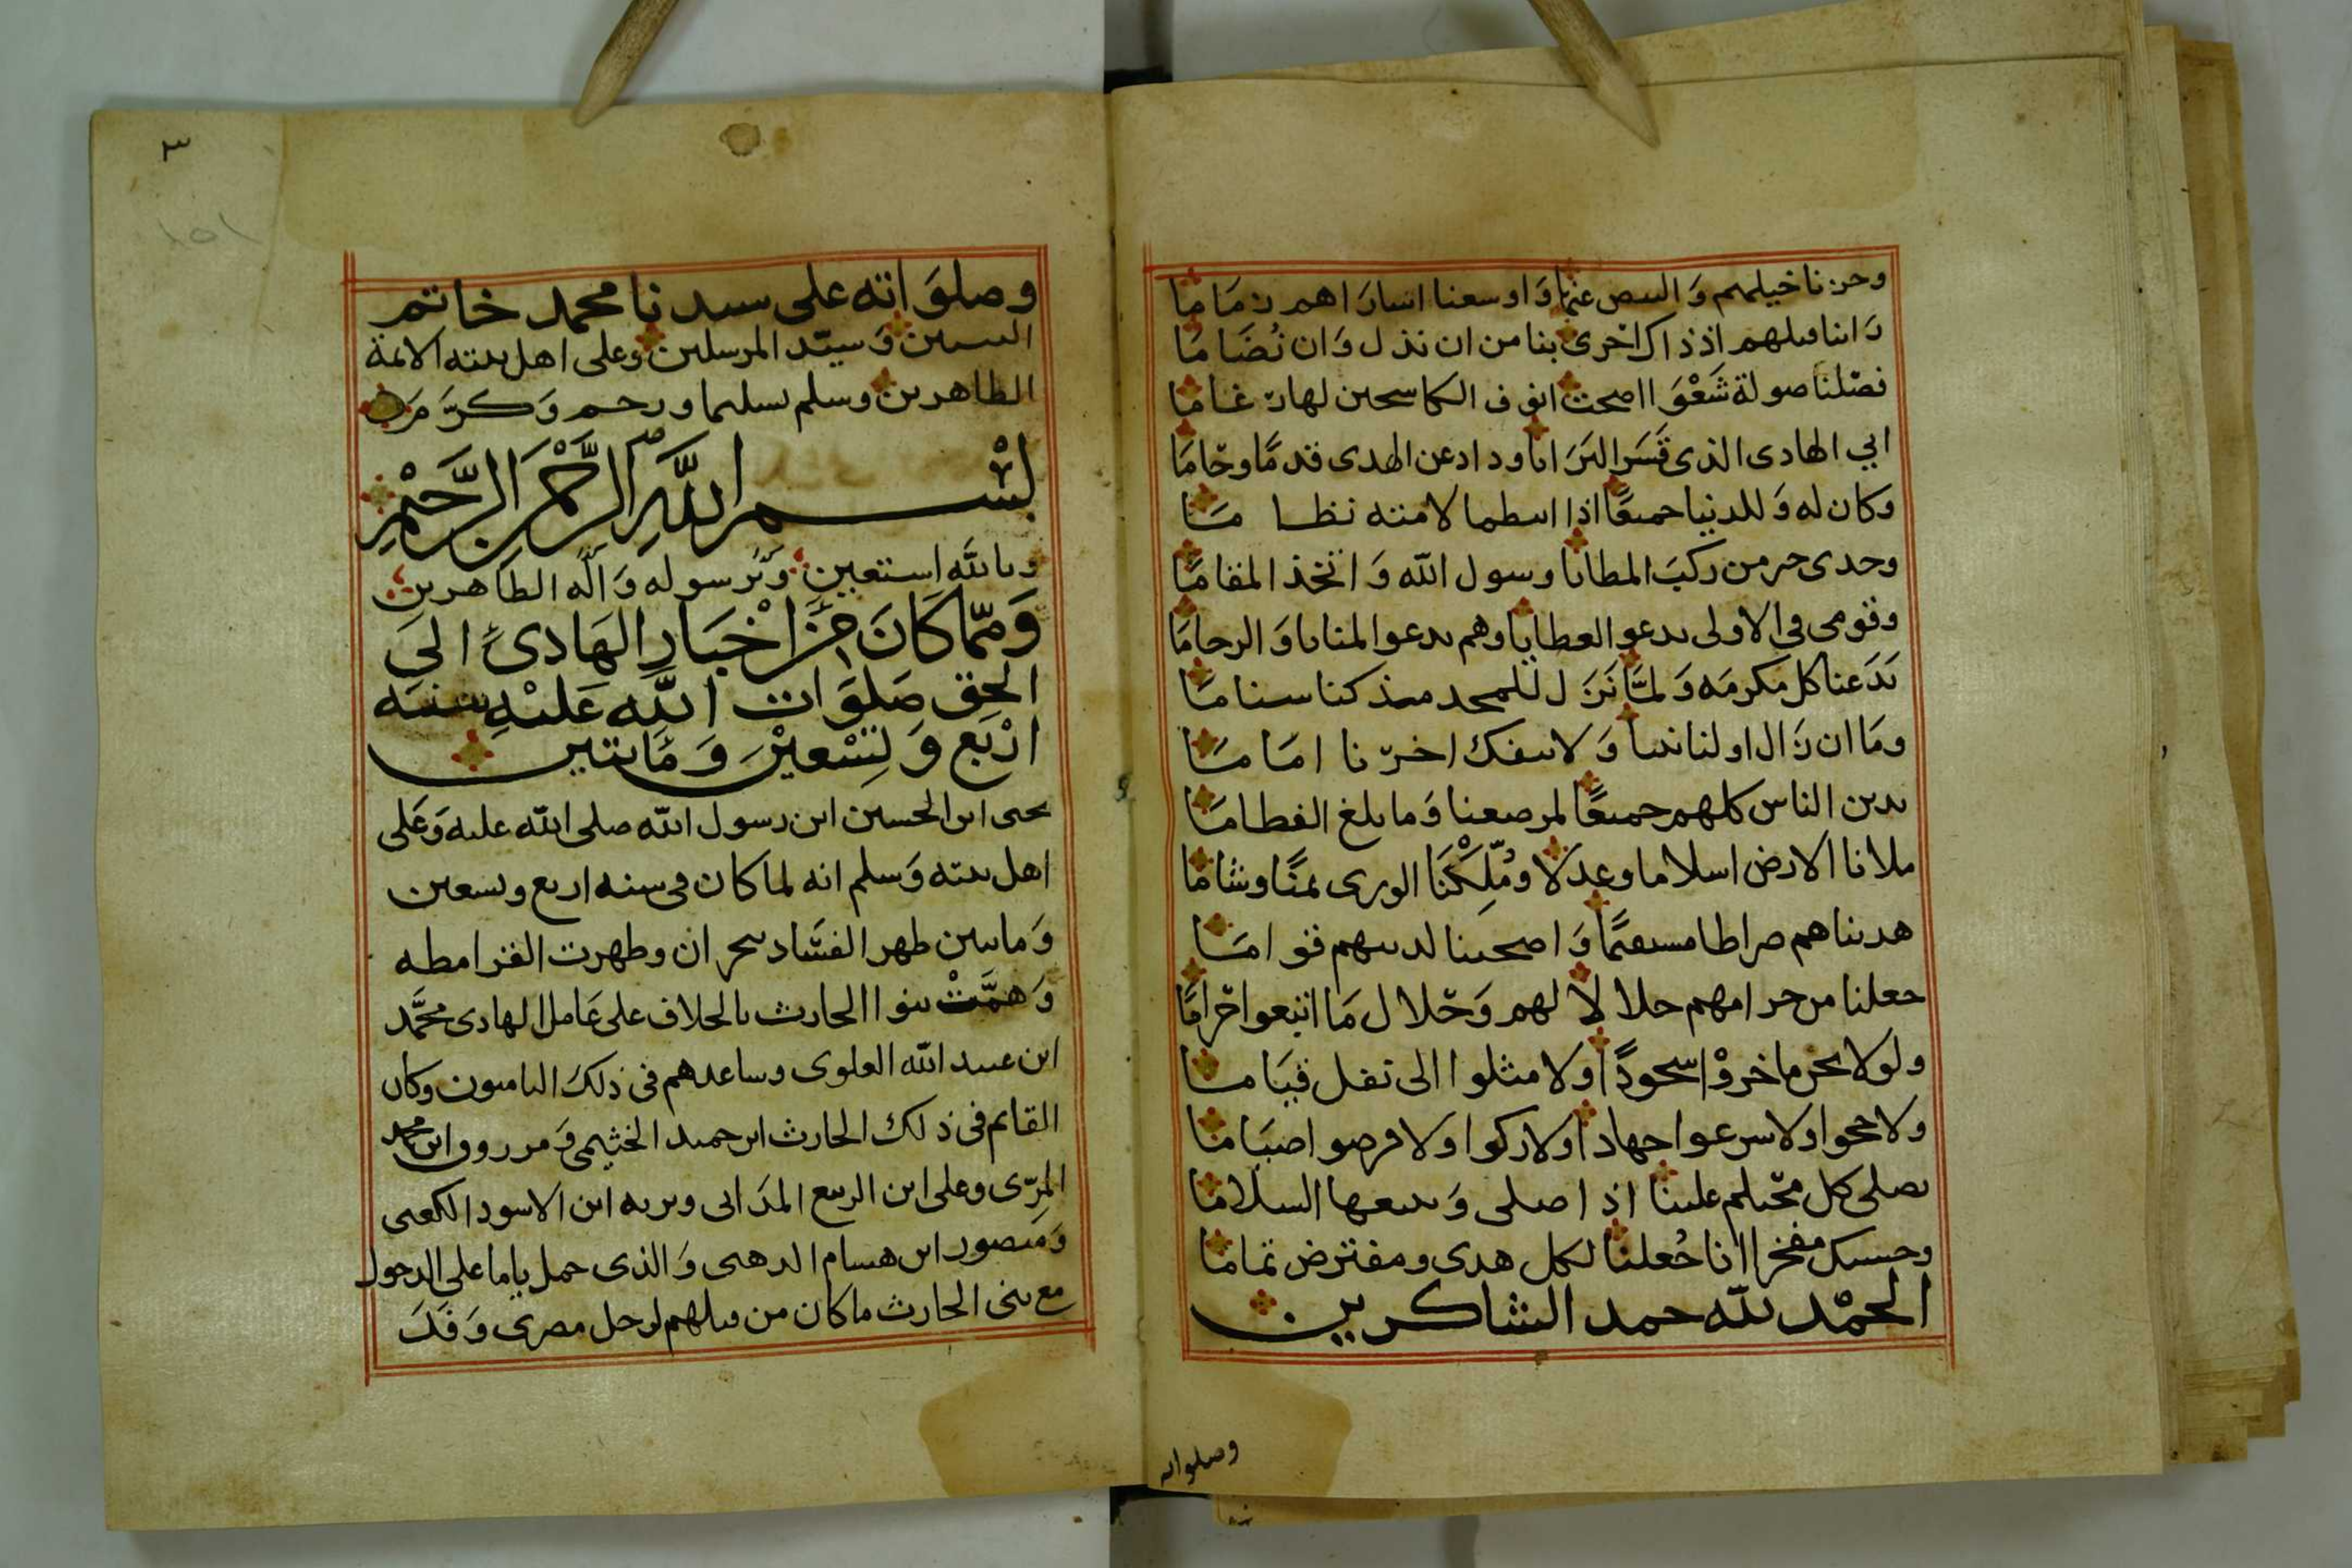 وحزنا خيلهم والبيض عنما واوسعنا اسارا هم زماما
وانا قبلهم اذ ذاك احرى بنا من ان نذل وان نضاما
فصلنا صولة شعوا اصحت انوف الكاسحين لها رغاما
ابي الهادى الذى قسر البرايا وداد عن الهدى قدما وحاما
وكان له وللدنيا جميعا اذا اسطما لامته نظا ما
وجدى خير من ركب المطايا رسول الله واتخذ المقاما
وقومى فى الاولى بدعو العطايا وهم بدعوا المنايا والرحاما
بدعنا كل مكرمه ولما نزل للمجد مىذ كنا سناما
وما ان زال اولنا نبيا ولا ينفك اخرنا اماما
يدين الناس كلهم جميعا لمرضعنا وما بلغ الفطاما
ملانا الارض اسلاما وعدلا وملكنا الورى يمنا وشاما
هديناهم صراطا مستقيما واصحينا لديهم قواما
جعلنا من حرامهم حلالا لهم وحلال ما اتبعوا حراما
ولولا نحن ما خروا سجودا ولا مثلوا الى نفل قياما
ولا حجوا ولا سرعوا جهادا ولا زكوا ولا فرضوا صياما
يصلى كل محتلم علينا اذا صلى ويتبعها السلاما
وحسبك مفخرا انا جعلنا لكل هدى ومفترض تماما
الحمد لله حمد الشاكرين
وصلواته
٣
١٥١
وصلواته على سيدنا محمد خاتم
النبيين وسيد المرسلين وعلى اهل بيته الائمة
الطاهرين وسلم تسليما ورحم وكرم
بسم الله الرحمن الرحيم
وبالله استعين وبرسوله واله الطاهرين
ومما كان من اخبار الهادى الى
الحق صلوات الله عليه سنه
اربع وتسعين ومايتين
يحيى ابن الحسين ابن رسول الله صلى الله عليه وعلى
اهل بيته وسلم انه لما كان فى سنه اربع وتسعين
ومايتين ظهر الفساد بنجران وظهرت القرامطه
وهمت بنوا الحارث بالخلاف على عامل الهادى محمد
ابن عبيد الله العلوى وساعدهم فى ذلك الياميون وكان
القايم فى ذلك الحارث ابن حميد الخثيمى ومرزوق ابن محمد
المرى وعلى ابن الربيع المدانى وبربه ابن الاسود الكعبى
ومنصور ابن هسام الدهمى والذى حمل ياما على الدخول
مع بنى الحارث ما كان من قبلهم لرجل مصرى وفد